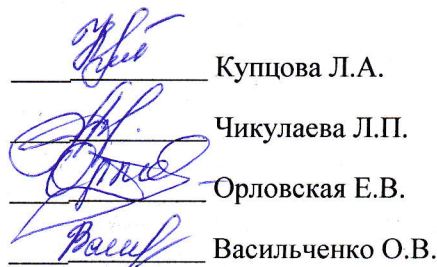 Купцова Л.А.
Чикулаева Л.П.
Орловская Е.В.
Васильченко О.В.